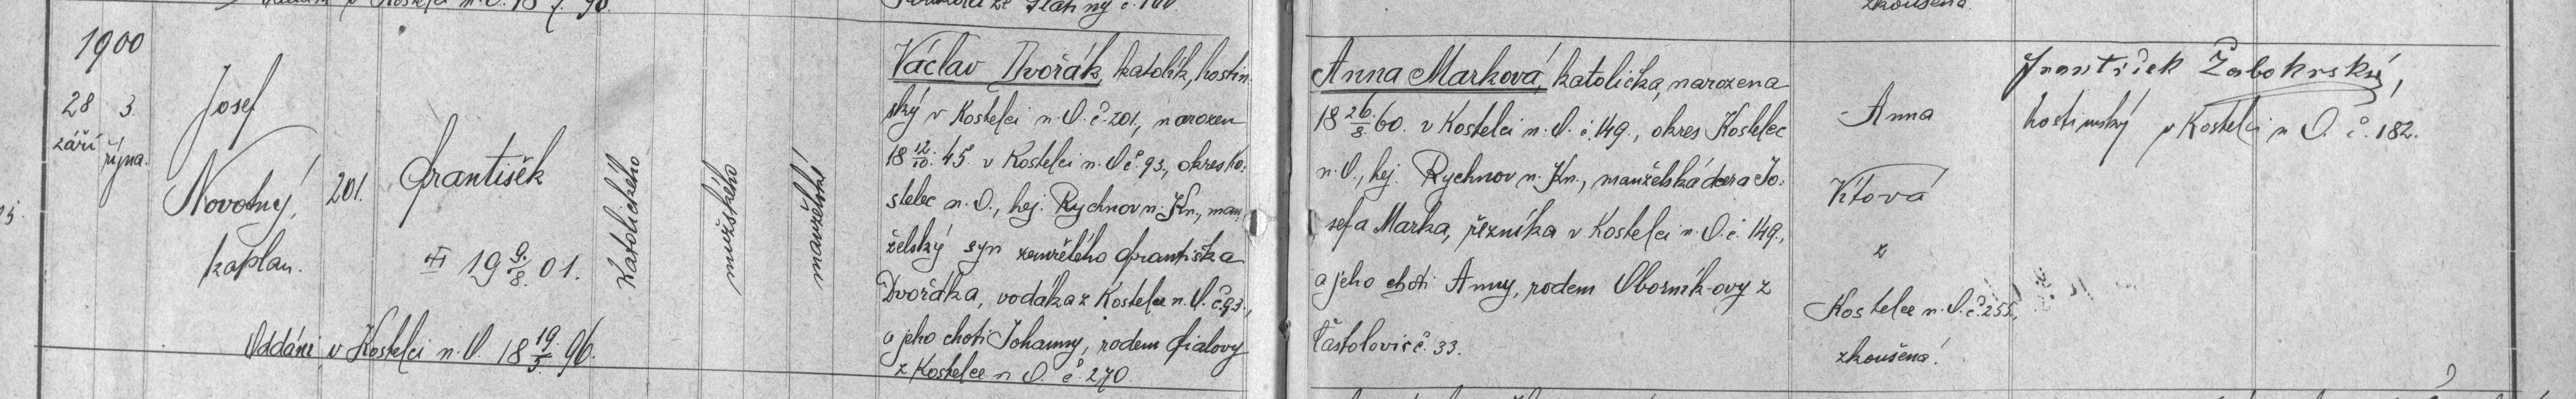 1900
28 3.
září října.
Josef
Novotný,
kaplan.
201.
František
19 9/8. 01.
Oddáni v Kostelci n. O. 18 19/5. 96.
Katolického
mužského
manželské
Václav Dvořák, katolík, hostin-
ský v Kostelci n. O. č. 201., narozen
18 12/10. 45. v Kostelci n. O. č. 93., okres Ko-
stelec n. O., hej. Rychnov n. Kn., man-
želský syn zemřelého Františka
Dvořáka, vodáka z Kostelce n. O. č. 93.,
a jeho choti Johanny, rodem Fialovy
z Kostelce n. O. č. 270.
Anna Marková, katolička, narozena
18 26/8. 60. v Kostelci n. O. č. 149., okres Kostelec
n. O., hej. Rychnov n. Kn., manželská dcera Jo-
sefa Marka, řezníka v Kostelci n. O. č. 149.,
a jeho choti Anny, rodem Oborníkovy z
Častolovic č. 33.
Anna
Vítová
z
Kostelce n. O. č. 255.,
zkoušená.
František Žabokrský,
hostinský v Kostelci n O. č. 182.